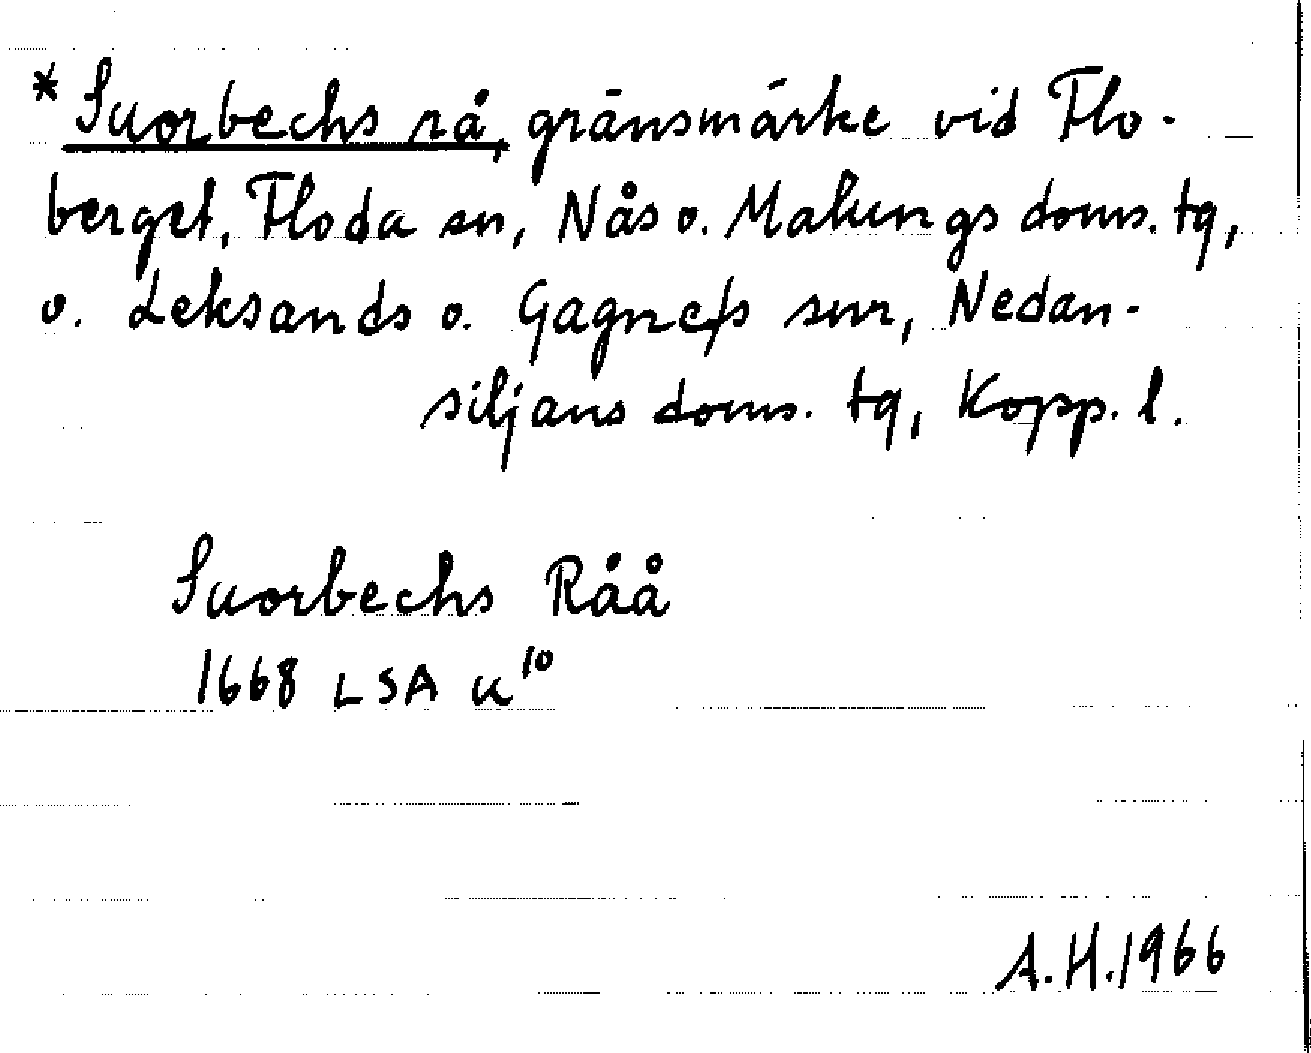 * Suorbechs rå, gränsmärke vid Flo-
berget, Floda sn, Nås o. Malungs doms. tg,
o. Leksands o. Gagnefs snr, Nedan-
siljans doms. tg, Kopp. l.
Suorbechs Råå
1668 LSA u¹⁰
A.H.1966